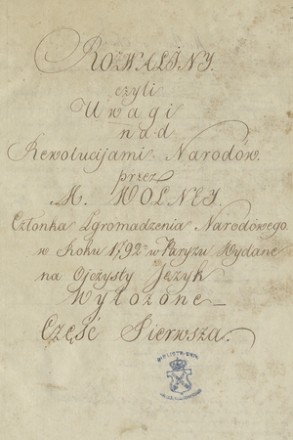 ROZWALINY.
czyli
Uwagi
nad
Rewolucijami Narodów.
przez
M. WOLNEY.
Członka Zgromadzenia Narodowego
w Roku 1792 w Paryżu Wydane
na Ojczysty Język
Wyłożone
Część Pierwsza.